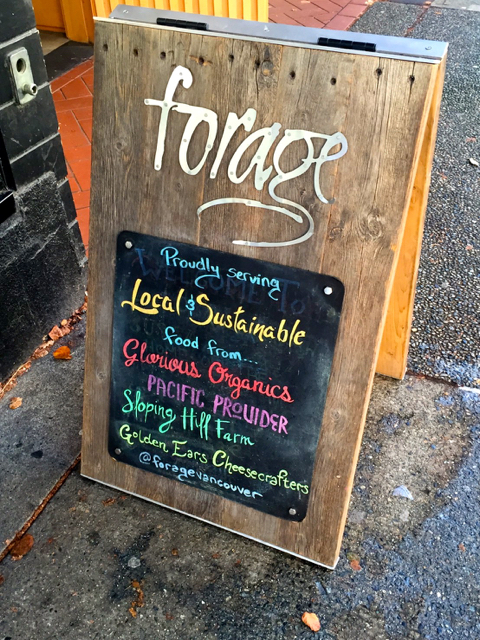 forage
Proudly serving
Local & Sustainable
food from...
Glorious Organics
PACIFIC PROVIDER
Sloping Hill Farm
Golden Ears Cheesecrafters
@foragevancouver